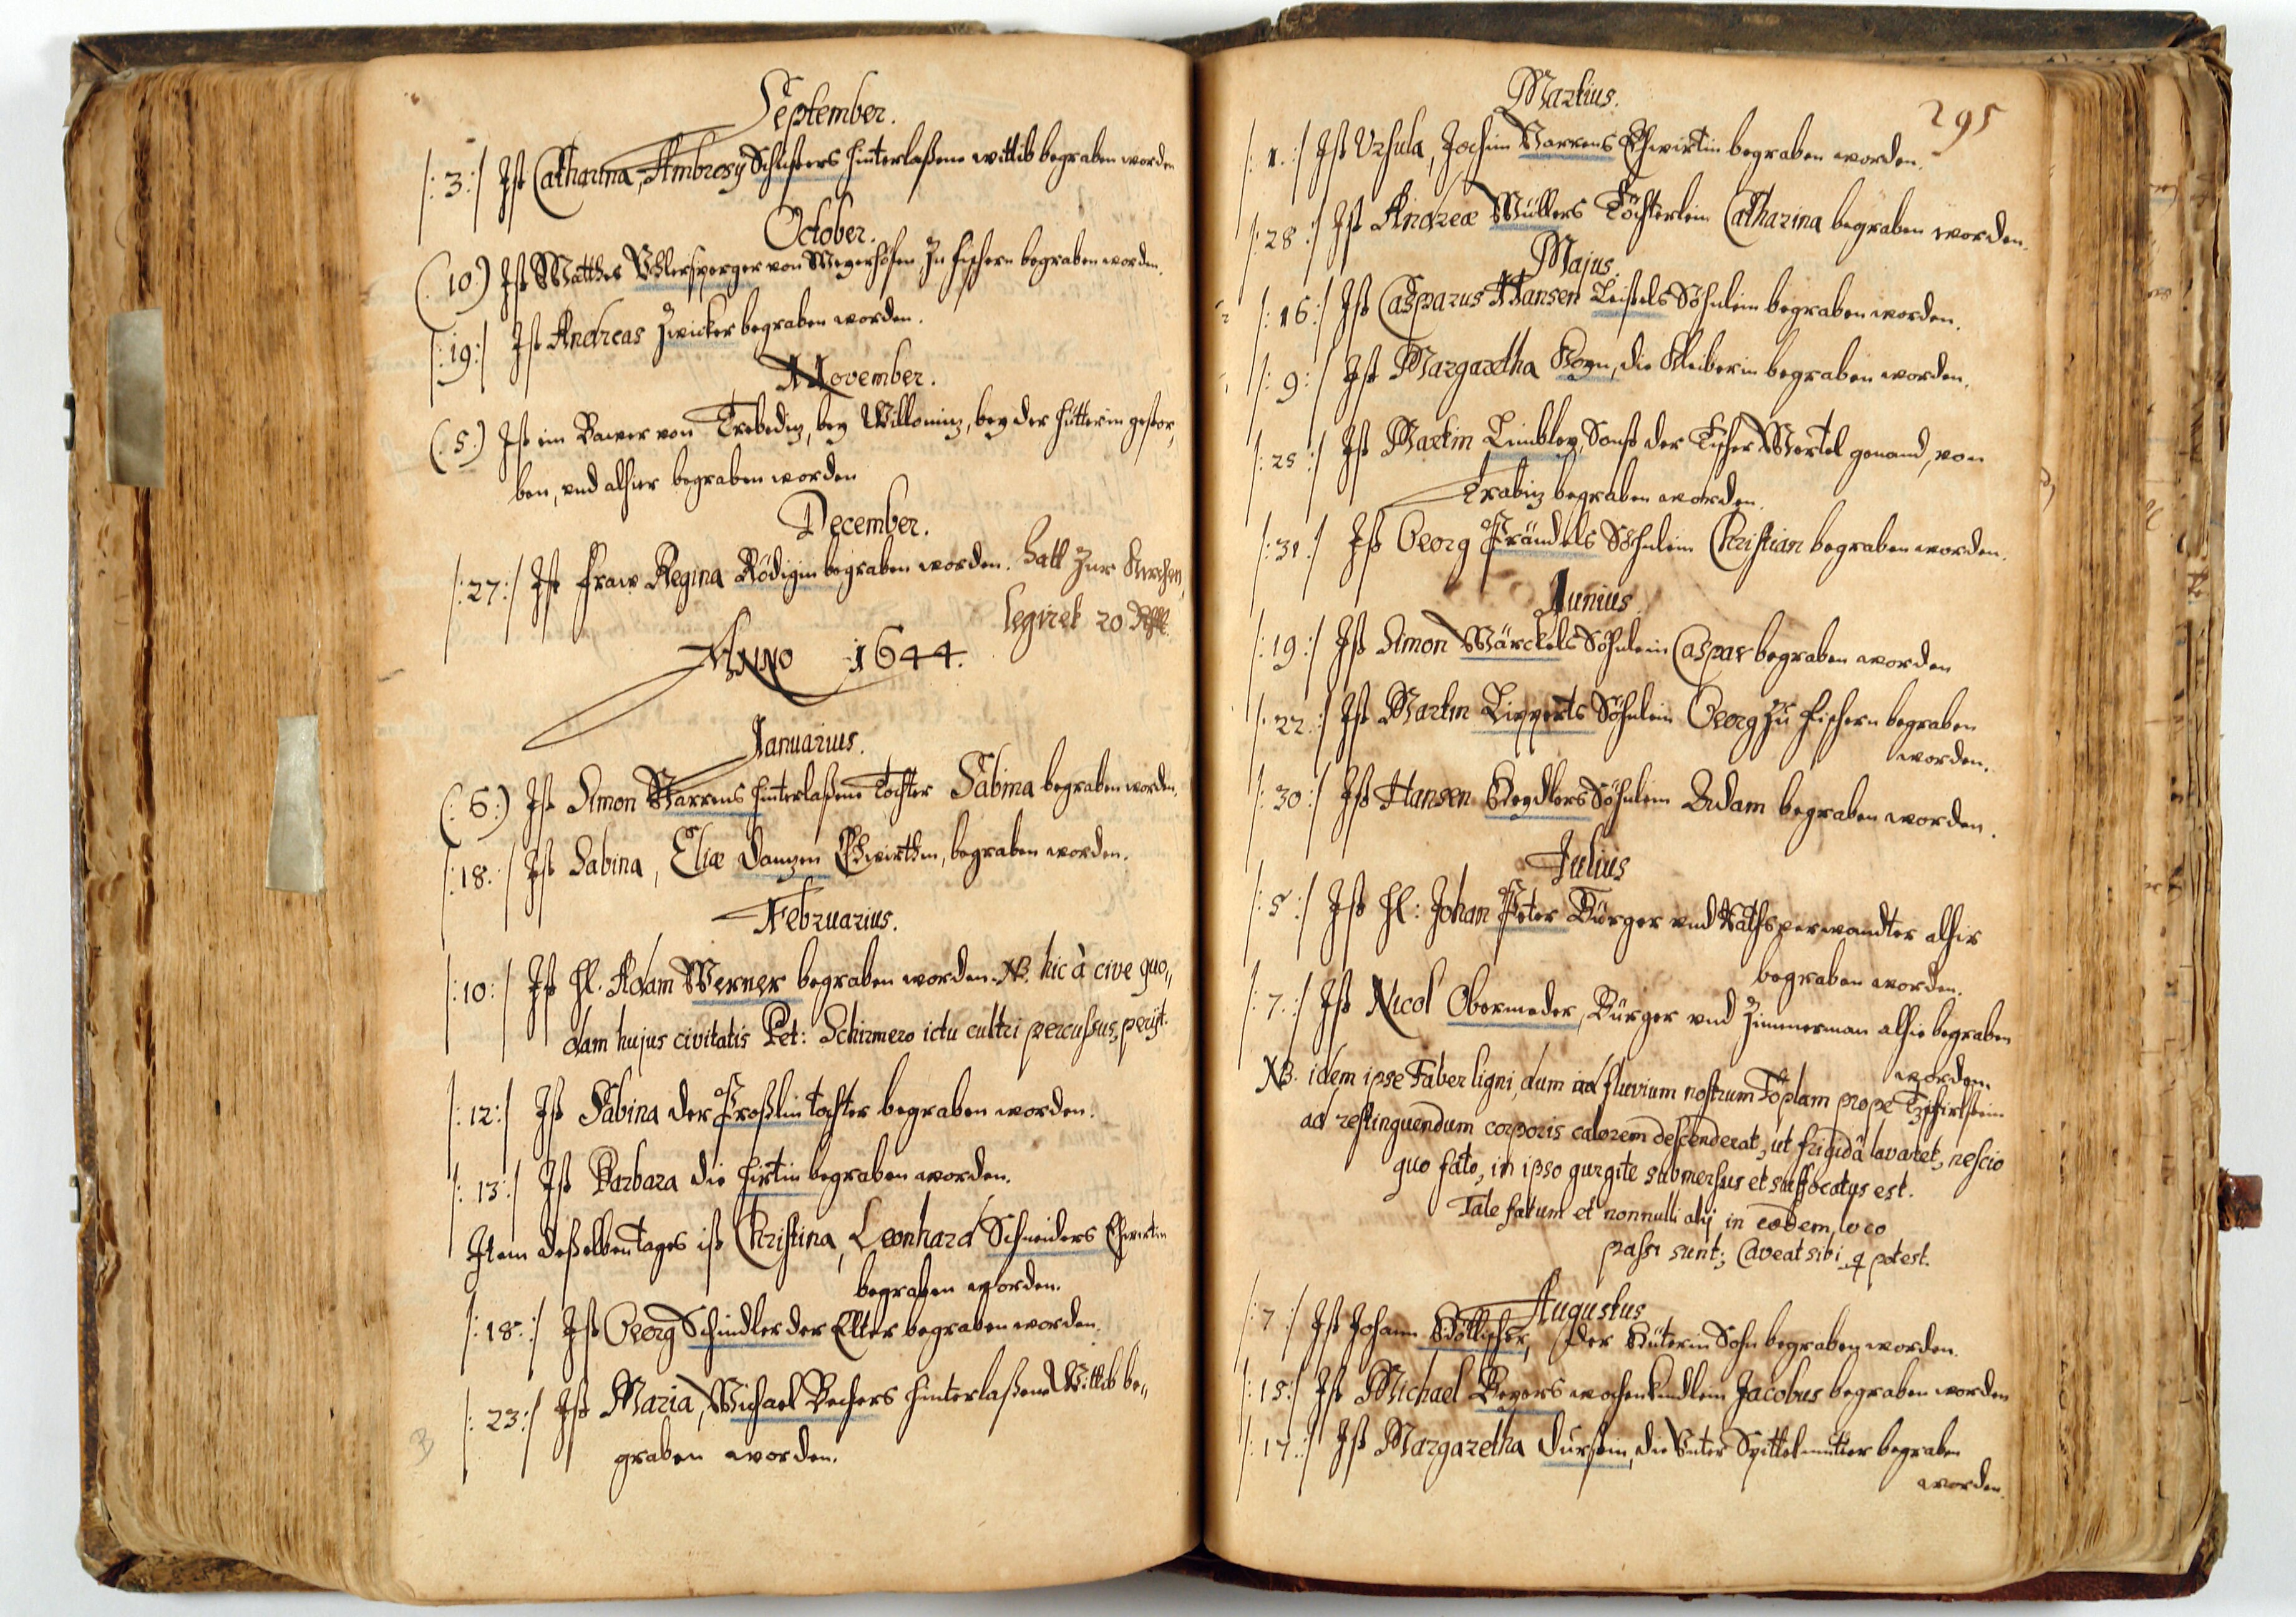 September.
/: 3 :/ Ist Catharina, Ambrosy Schusters hinterlaßene wittib begraben worden
October.
(. 10 :) Ist Matthes Vhlersperger von Meyerhöfen, Zu fischern begraben worden.
/: 19 :/ Ist Andreas Zwicker begraben worden.
November.
(. 5 :) Ist ein Bawer von Trebediz, bey Willominz, bey der hütterin gestor,
ben, vnd alhier begraben worden
December.
/: 27 :/ Ist fraw Regina Rödigin begraben worden. hatt Zur Kirchen,
legiret 20 Rthl.
ANNO 1644.
Januarius.
(: 6 :) Ist Simon Narrens hinterlaßene Tochter Sabina begraben worden.
/: 18 : / Ist Sabina, Eliæ Danzen Ehwirthin, begraben worden.
Februarius.
/: 10 : / Ist H. Adam Werner begraben worden. NB. hic à cive quo,,
dam hujus civitatis Pet: Schirmero ictu cultri percussus, perijt.
/: 12 :/ Ist Sabina der Proßlin tochter begraben worden.
/: 13 :/ Ist Barbara die hirtin begraben worden.
Item deßelben tages ist Christina, Leonhard Schneiders Ehwirtin
begraben worden.
/: 18 :/ Ist Georg Schindler der Elter begraben worden.
/: 23 :/ Ist Maria, Michael Bechers hinterlaßene Wittib be,,
graben worden.
295
Martius.
/: 1. :/ Ist Ursula, Jochim Narrens Ehwirtin begraben worden.
/: 28 :/ Ist Andreæ Müllers Töchterlein Catharina begraben worden.
Majus.
/: 16 :/ Ist Casparus Hansen Leistels Söhnlein begraben worden.
/: 9 :/ Ist Margaretha die Kleiberin begraben worden.
/: 25 :/ Ist Martin Limbley, Sonst der Tischer Mertel genand, von
Trabiz begraben worden.
/: 31 :/ Ist Georg Prändels Söhnlein Christian begraben worden.
Junius
/: 19 :/ Ist Simon Märckels Söhnlein Caspar begraben worden
/: 22 :/ Ist Martin Lipperts Söhnlein Georg Zu fischern begraben
worden.
/: 30 :/ Ist Hansen Heydlers Söhnlein Adam begraben worden.
Julius
/: 5 :/ Ist H: Johan Peter Bürger vnd Rathsverwandter alhir
begraben worden.
/: 7. :/ Ist Nicol Obermeder, Bürger vnd Zimmerman alhie begraben
worden.
NB. idem ipse Faber ligni, dum ad fluvium nostrum Töplam prope
ad restinguendum corporis calorem descenderat, ut frigidâ lavaret, nescio
quo fato, in ipso gurgite submersus et suffocatus est.
Tale fatum et nonnulli alij in eodem loco
passi sunt; Caveat sibi q potest.
Augustus
/: 7 :/ Ist Johann Böttischer, der Hüterin Sohn begraben worden.
/: 15 :/ Ist Michael Beyers wochenkindlein Jacobus begraben worden
/: 17 :/ Ist Margaretha Durstin, die Vnter Spittelmutter begraben
worden.